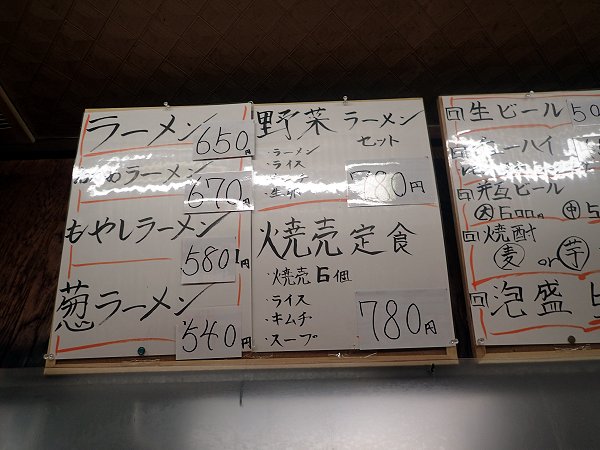 ラーメン 650円
ラーメン 670円
もやしラーメン
580円
葱ラーメン
540円
野菜ラーメン
セット
・ラーメン
・ライス
780円
焼売定食
・焼売6個
・ライス
・キムチ
・スープ
780円
生ビール
ーハイ
ビール
焼酎
麦 or 芋
泡盛